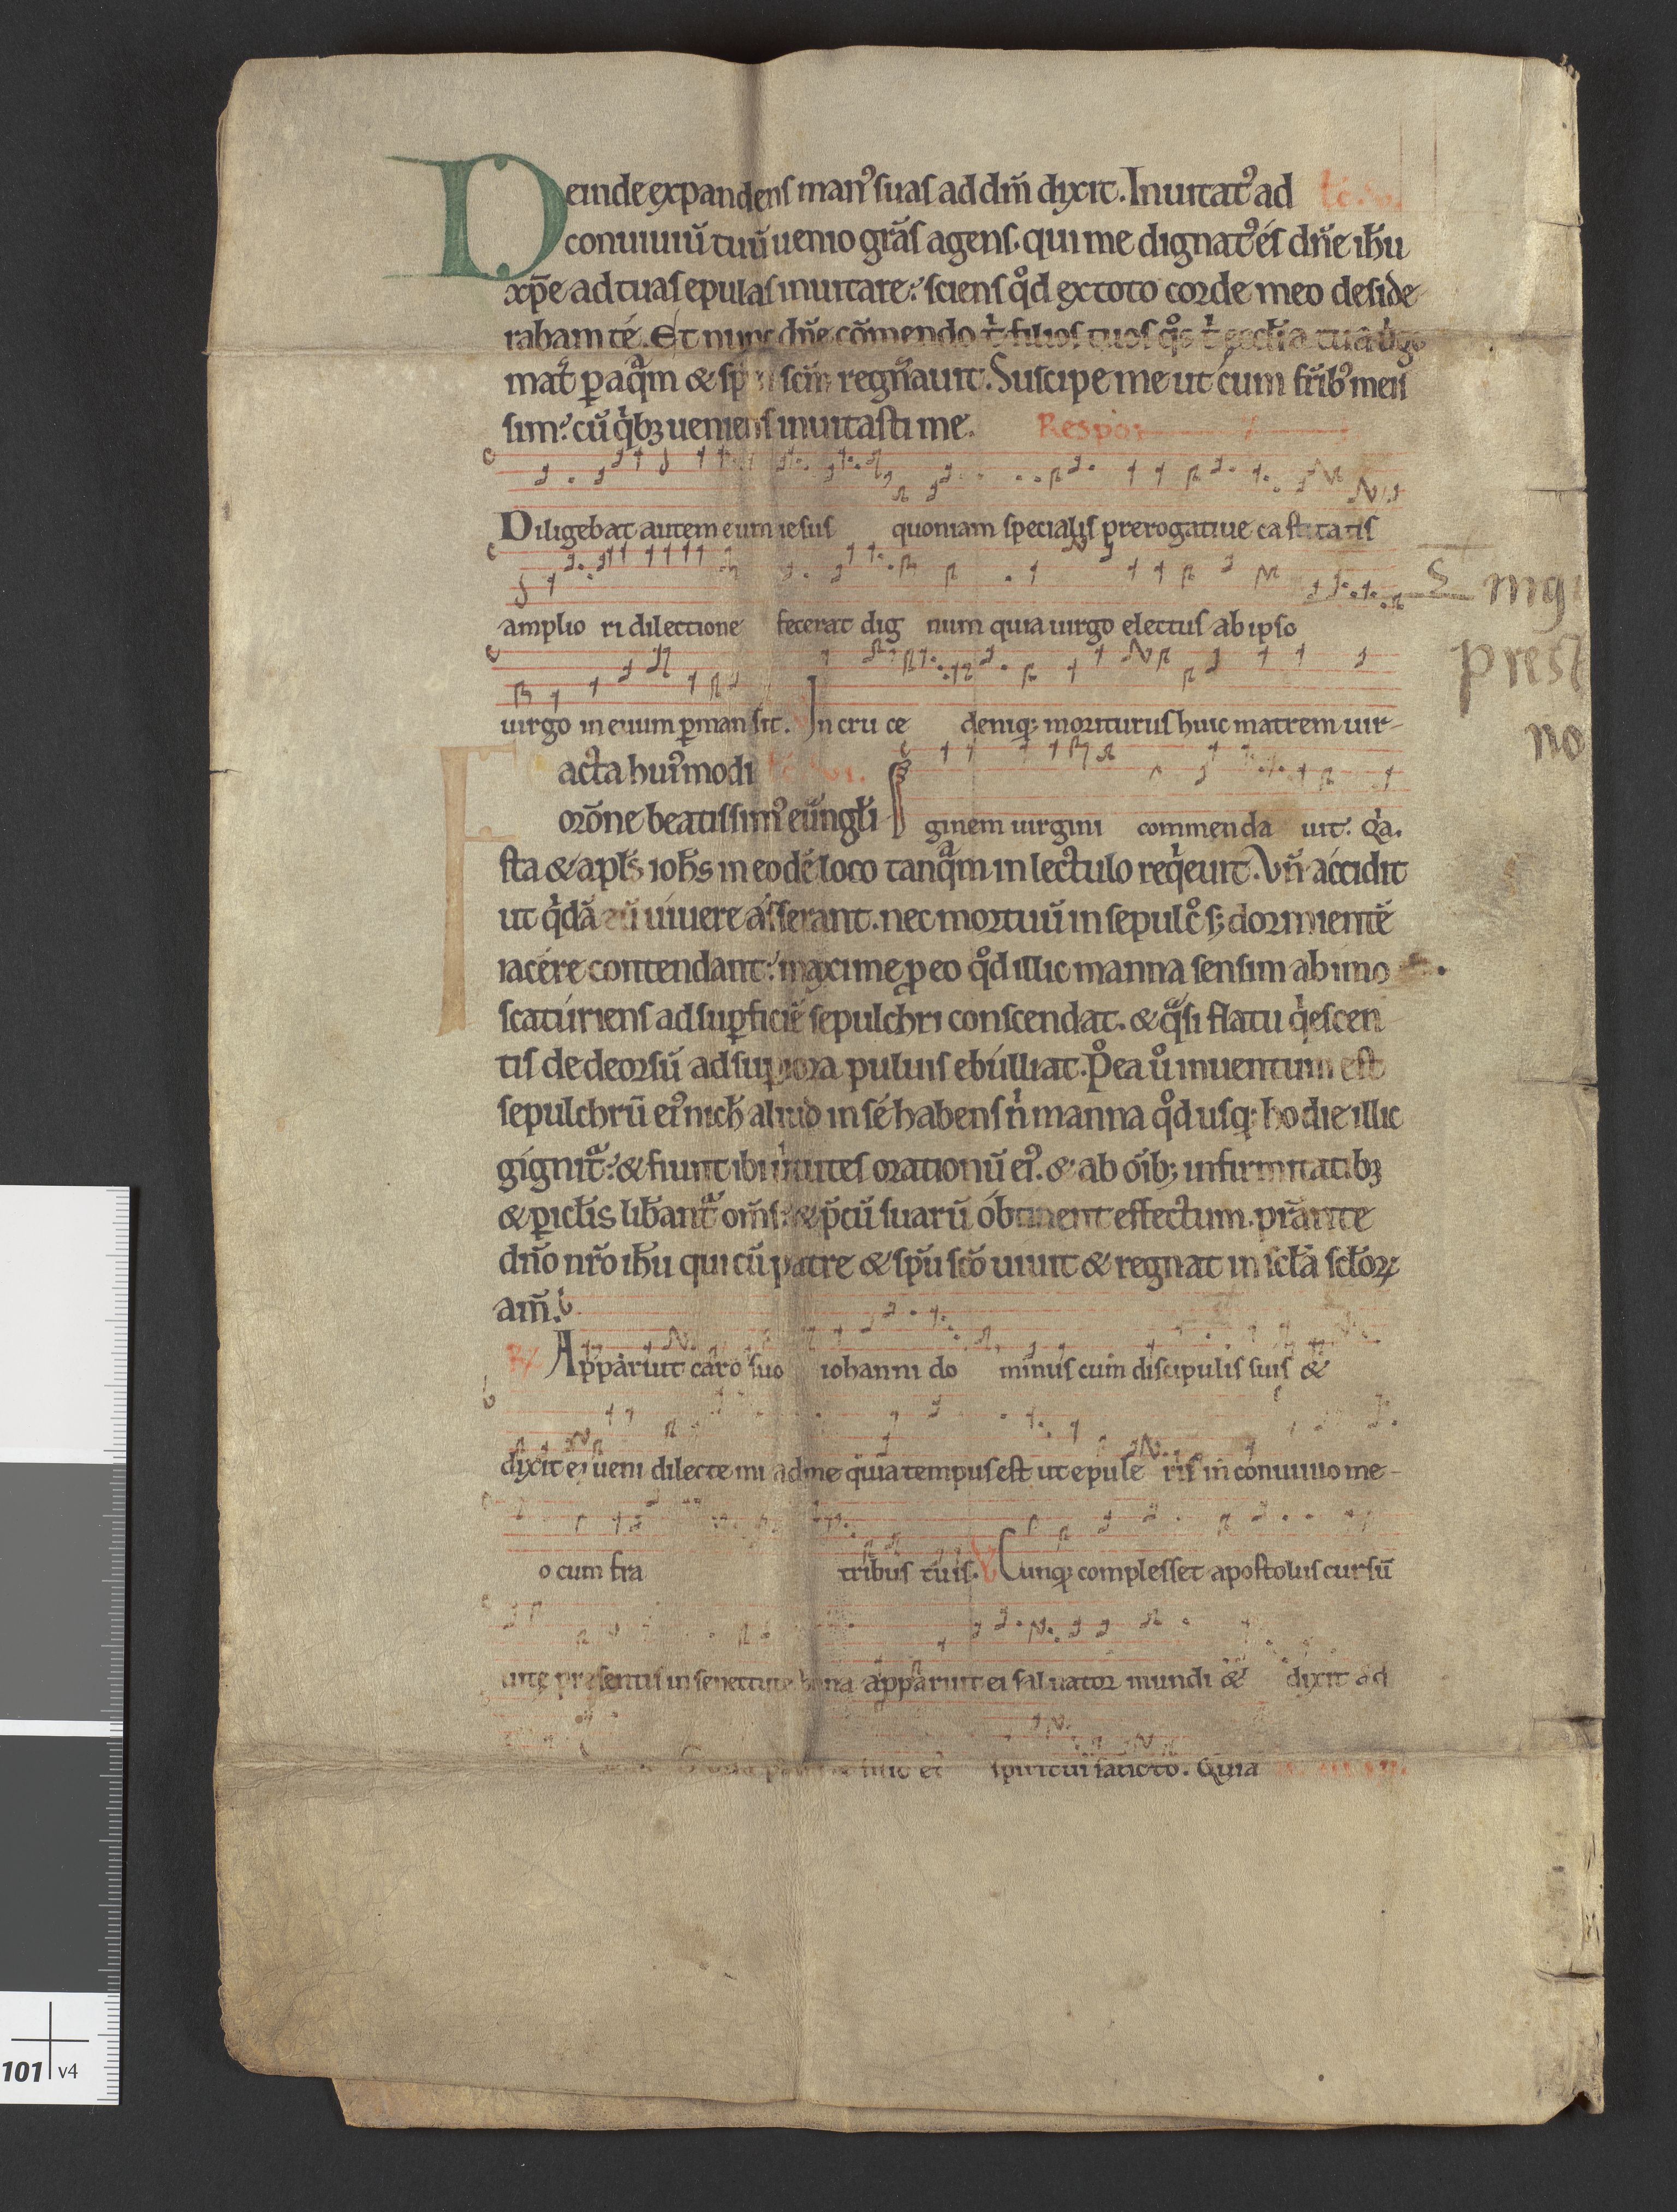 Deinde expandens man᷒ suas ad dm̄ dixit. Inuitat᷒ ad
conuiuiū tuū uenio grās agens. qui me dignat᷒ és dn̄e ihū
xp̄e ad tuas epulas inuitare: sciens qd̊ ex toto corde meo deside
rabam té. Et nunc dn̄e cōmendo t̍ filios tuos q̊s t̍ ęcclīa tua
mat̄ p̲ aq̄m & sp̄m scm̄ regn̄auit. Suscipe me ut cum fr̄ib᷒ meis
sim: cū q̍bꝫ ueniens inuitasti me. Respoꝭ
Diligebat autem eum iesus quoniam specialis prerogatiue castitatis
amplio ri dilectione fecerat dig num quia uirgo electus ab ipso
uirgo in euum p̲mansit. In cru ce deniq; moriturus huic matrem uir-
Facta hui᷒modi
orōne beatissim᷒ eūngłi ginem uirgini commenda uit. Q̍a.
sta & apl̄s ioh̄s in eodē loco tanq̄m in lectulo req̍euit. Vn̄ accidit
ut q̍dā eū uiuere ásserant. nec mortuū in sepulc̊ s; dormientē
iacére contendant: maxime p̲ eo qd̊ illic manna sensim ab imo
scatúriens ad sup̲ficiē sepulchri conscendat. & q̄si flatu q̍escen
tis de deorsū ad sup̲iora puluis ebúlliat. P᷒ea ů inuentum est
sepulchrū ei᷒ nich̄ aliud in sé habens n̍ manna qd̊ usq; hodie illic
gignit᷑: & fiunt ibi uirtutes orationū ei᷒. & ab oīb; infirmitatibꝫ
& p̲iclīs lib̄ant᷑ om̄s: & p̄cū suarū óbtinent effectum. prānte
dn̄o nr̄o ihū qui cū patre & sp̄u scō uiuit & regnat in scl̄a scl̄oꝝ
am̄.
R/ Apparuit caro suo iohanni do minus cum discipulis suis &
dixit ei ueni dilecte mi ad me quia tempus est ut epule ris in conuiuio me-
o cum fra tribus tuis. V Cunq; complesset apostolus cursū
uite presentis in senectute bona apparuit ei saluator mundi & dixit ad
Gloria patri & filio et spiritui sancto. Quia
S mgi
prest
no
101 v4